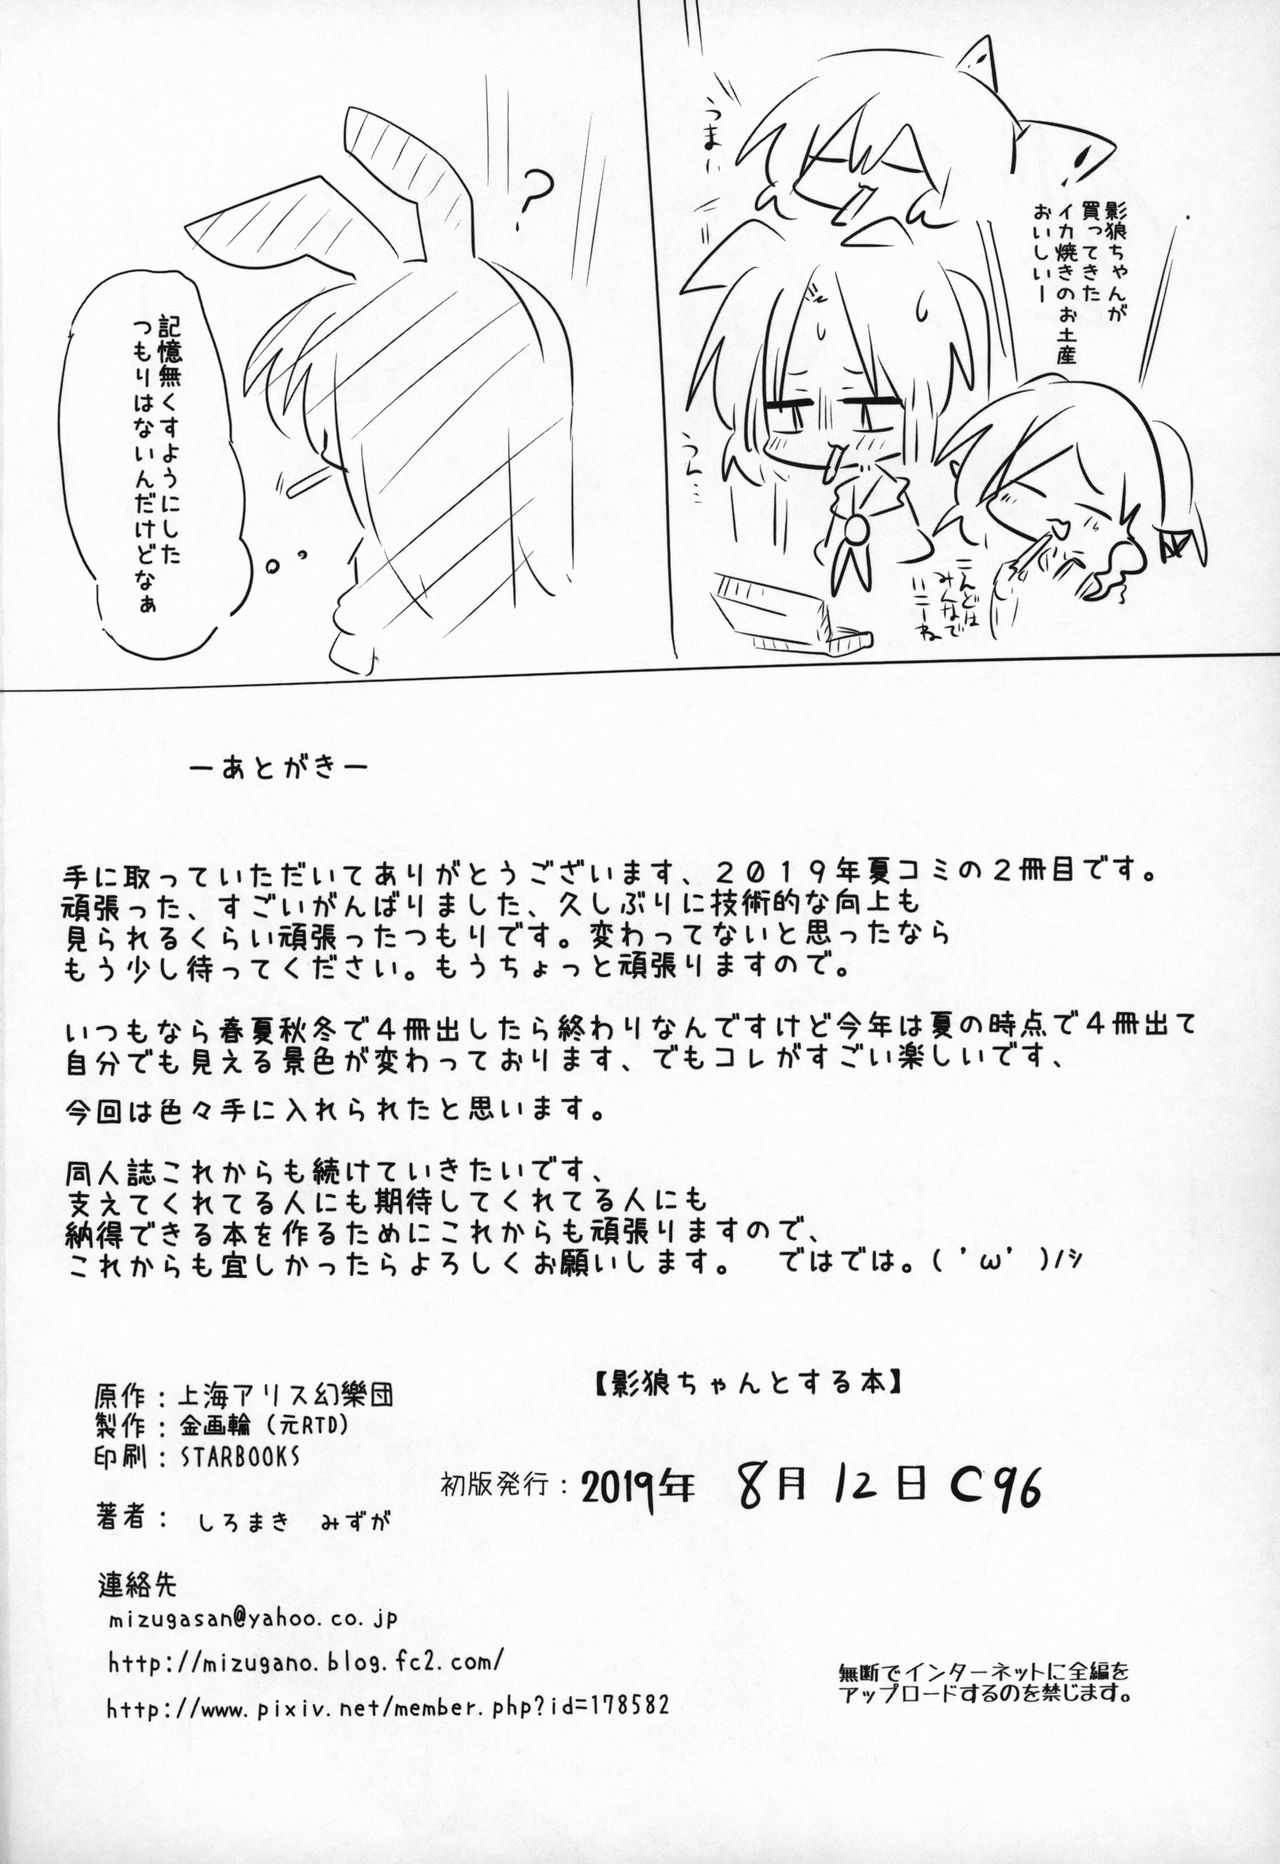 影狼ちゃんが
買ってきた
イカ焼きのお土産
おいしいー
うまい
うん…
こんどは
みんなで
いこーね
?
記憶無くすようにした
つもりはないんだけどなぁ
ーあとがきー
手に取っていただいてありがとうございます、2019年夏コミの2冊目です。
頑張った、すごいがんばりました、久しぶりに技術的な向上も
見られるくらい頑張ったつもりです。変わってないと思ったなら
もう少し待ってください。もうちょっと頑張りますので。
いつもなら春夏秋冬で4冊出したら終わりなんですけど今年は夏の時点で4冊出て
自分でも見える景色が変わっております、でもコレがすごい楽しいです、
今回は色々手に入れられたと思います。
同人誌これからも続けていきたいです、
支えてくれてる人にも期待してくれてる人にも
納得できる本を作るためにこれからも頑張りますので、
これからも宜しかったらよろしくお願いします。 ではでは。( 'ω' )/ｼ
【影狼ちゃんとする本】
原作：上海アリス幻樂団
製作：金画輪（元RTD）
印刷：STARBOOKS
初版発行：2019年 8月12日 C96
著者： しろまき みずが
連絡先
mizugasan@yahoo.co.jp
http://mizugano.blog.fc2.com/
http://www.pixiv.net/member.php?id=178582
無断でインターネットに全編を
アップロードするのを禁じます。